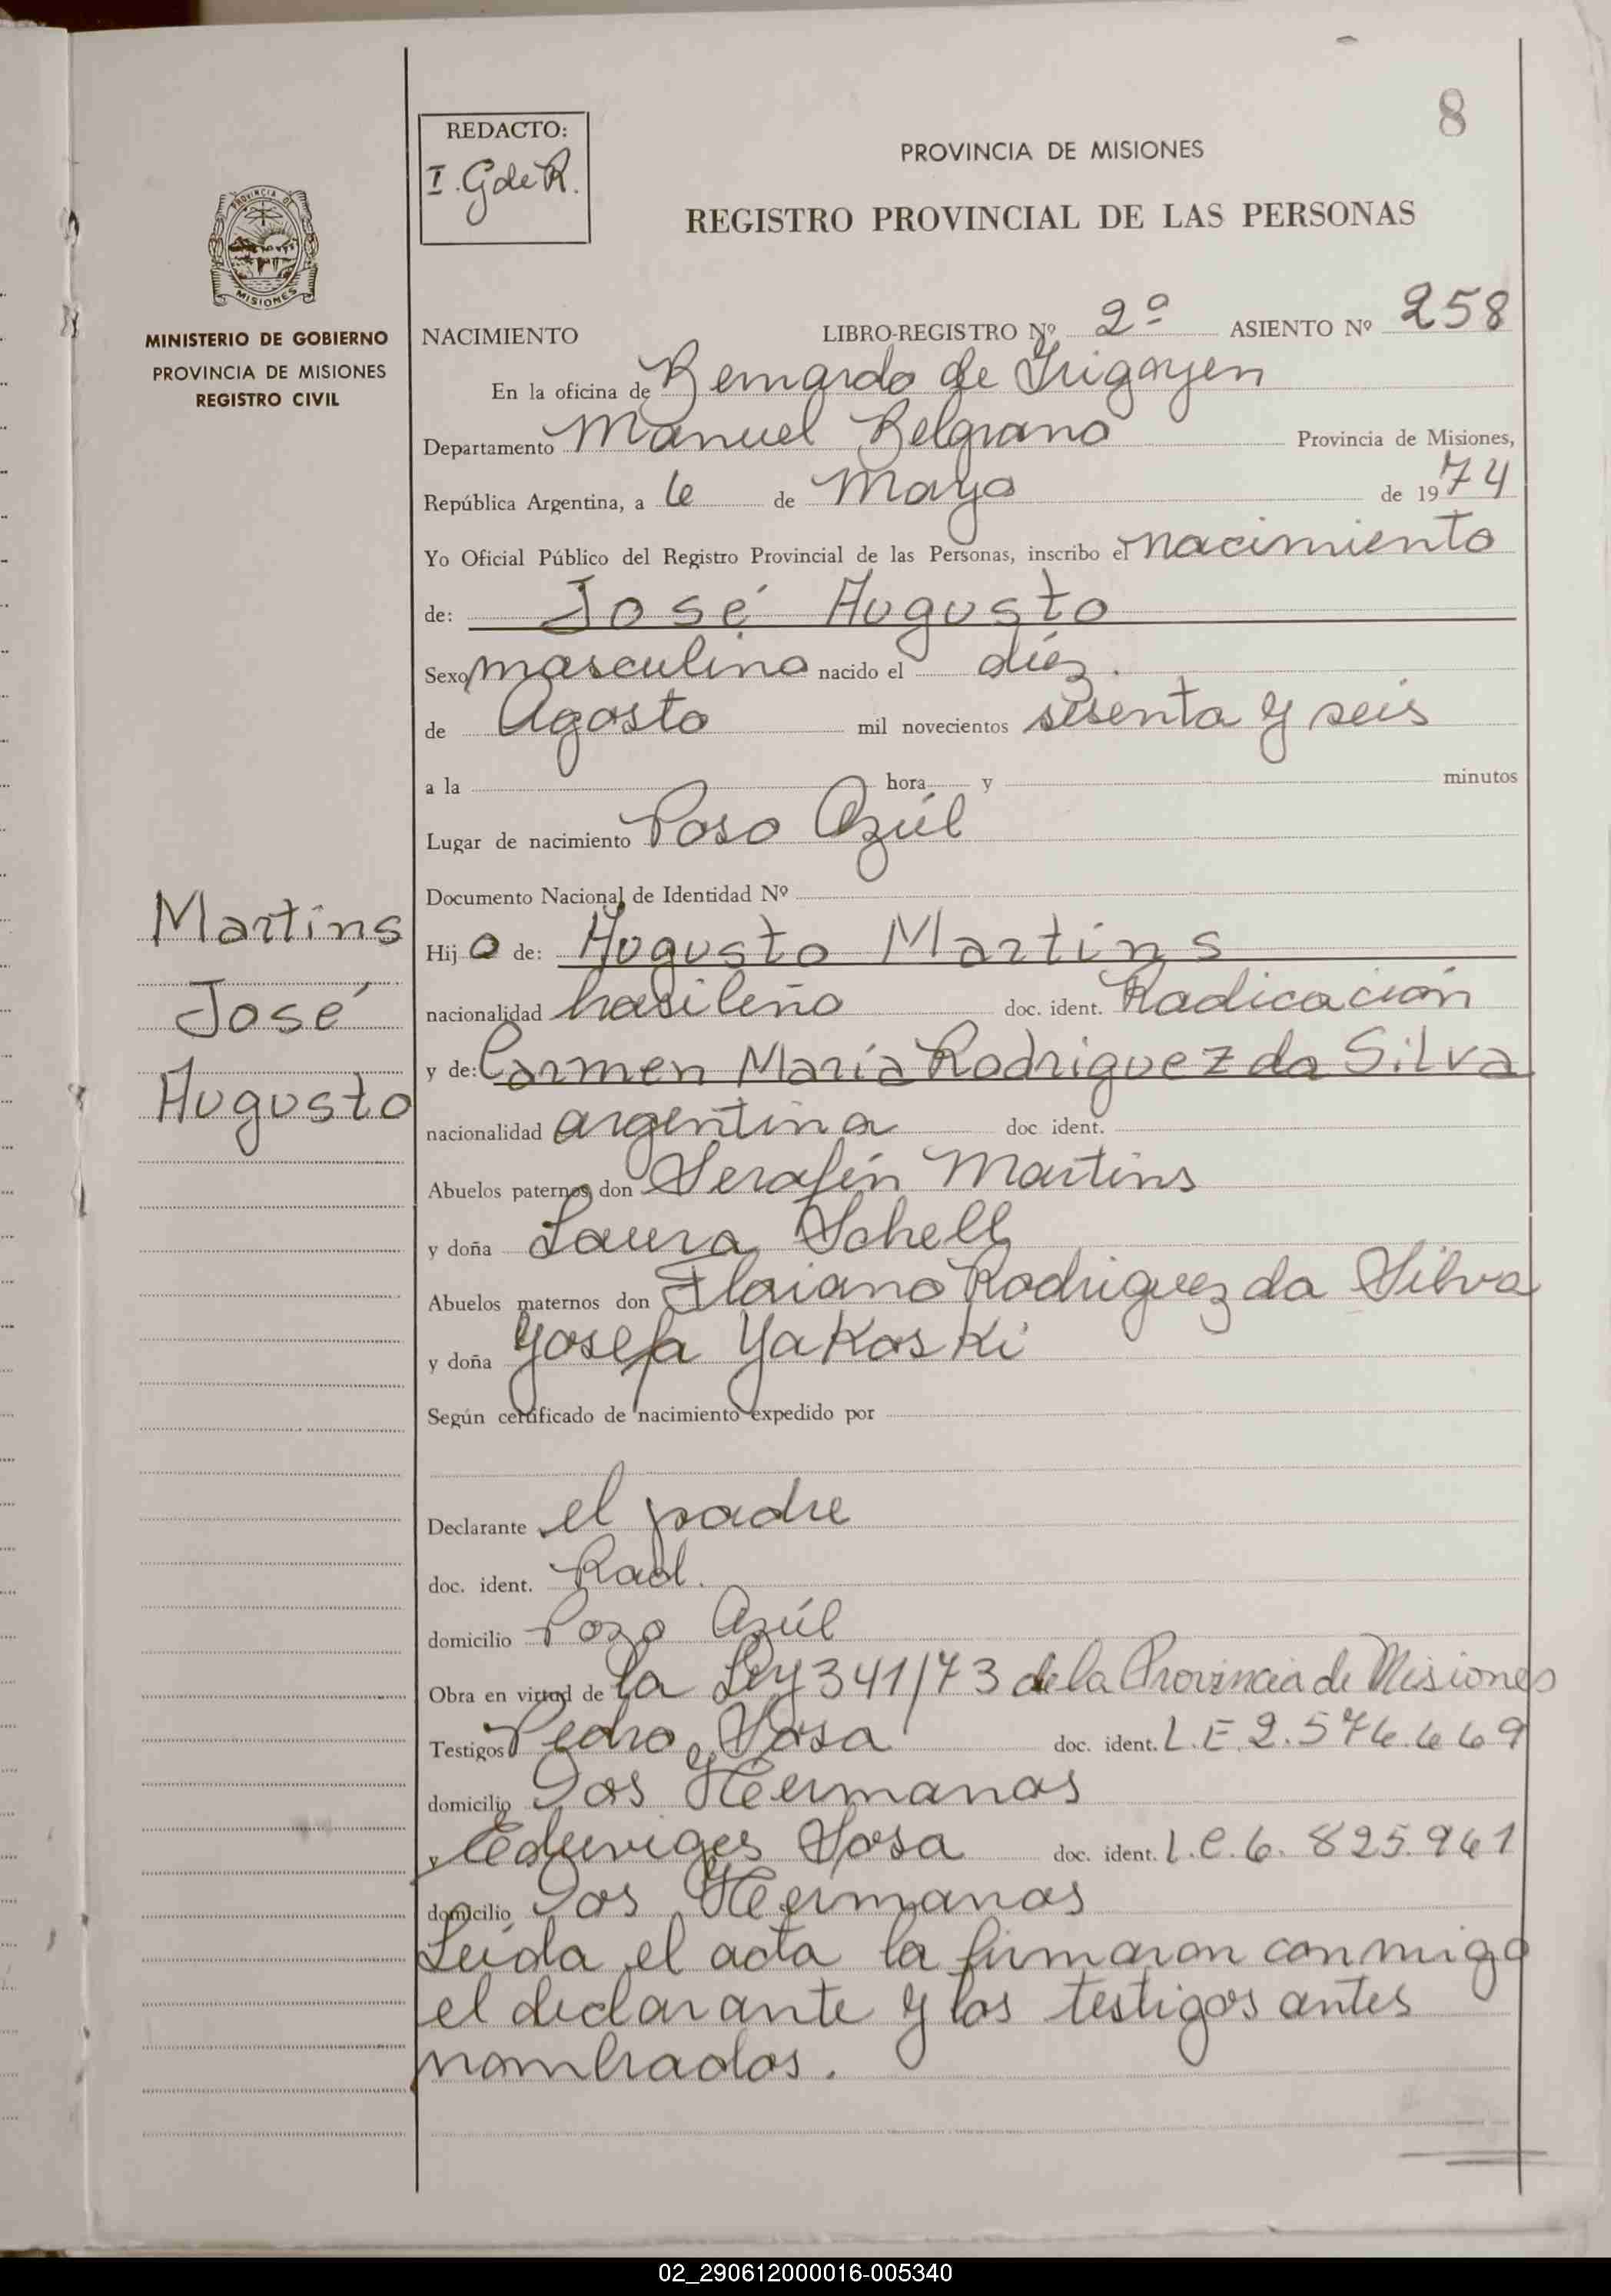 8
REDACTO:
I. G de R.
PROVINCIA DE MISIONES
REGISTRO PROVINCIAL DE LAS PERSONAS
PROVINCIA DE
MISIONES
MINISTERIO DE GOBIERNO
PROVINCIA DE MISIONES
REGISTRO CIVIL
NACIMIENTO LIBRO-REGISTRO Nº 2º ASIENTO Nº 258
En la oficina de Bernardo de Irigoyen
Departamento Manuel Belgrano Provincia de Misiones,
República Argentina, a 6 de Mayo de 1974
Yo Oficial Público del Registro Provincial de las Personas, inscribo el nacimiento
de: José Augusto
Sexo masculino nacido el diéz.
de Agosto mil novecientos sesenta y seis
a la hora y minutos
Lugar de nacimiento Poso Azúl
Documento Nacional de Identidad Nº
Martins
José
Augusto
Hijo de: Augusto Martins
nacionalidad brasileño doc. ident. Radicación
y de: Carmen María Rodriguez da Silva
nacionalidad argentina doc. ident.
Abuelos paternos don Serafín Martins
y doña Laura Schell
Abuelos maternos don Floriano Rodriguez da Silva
y doña Yosefa Yakoski
Según certificado de nacimiento expedido por
Declarante el padre
doc. ident. Rad.
domicilio Pozo Azúl
Obra en virtud de la Ley 341/73 de la Provincia de Misiones
Testigos Pedro Sosa doc. ident. L.E. 2.576.669
domicilio Dos Hermanas
y Eduviges Sosa doc. ident. L.C. 6.825.961
domicilio Dos Hermanas
Leída el acta la firmaron conmigo
el declarante y los testigos antes
nombrados.
02_290612000016-005340